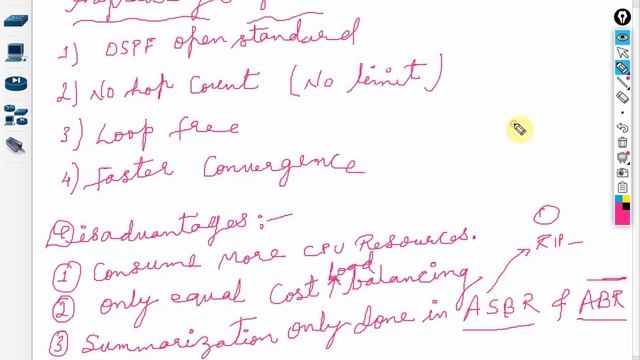 1) OSPF open standard
2) No hop Count (No limit)
3) Loop free
4) Faster Convergence
Disadvantages:-
1 Consume More CPU Resources.
RIP
2 Only equal Cost load balancing
3 Summarization only done in ASBR & ABR